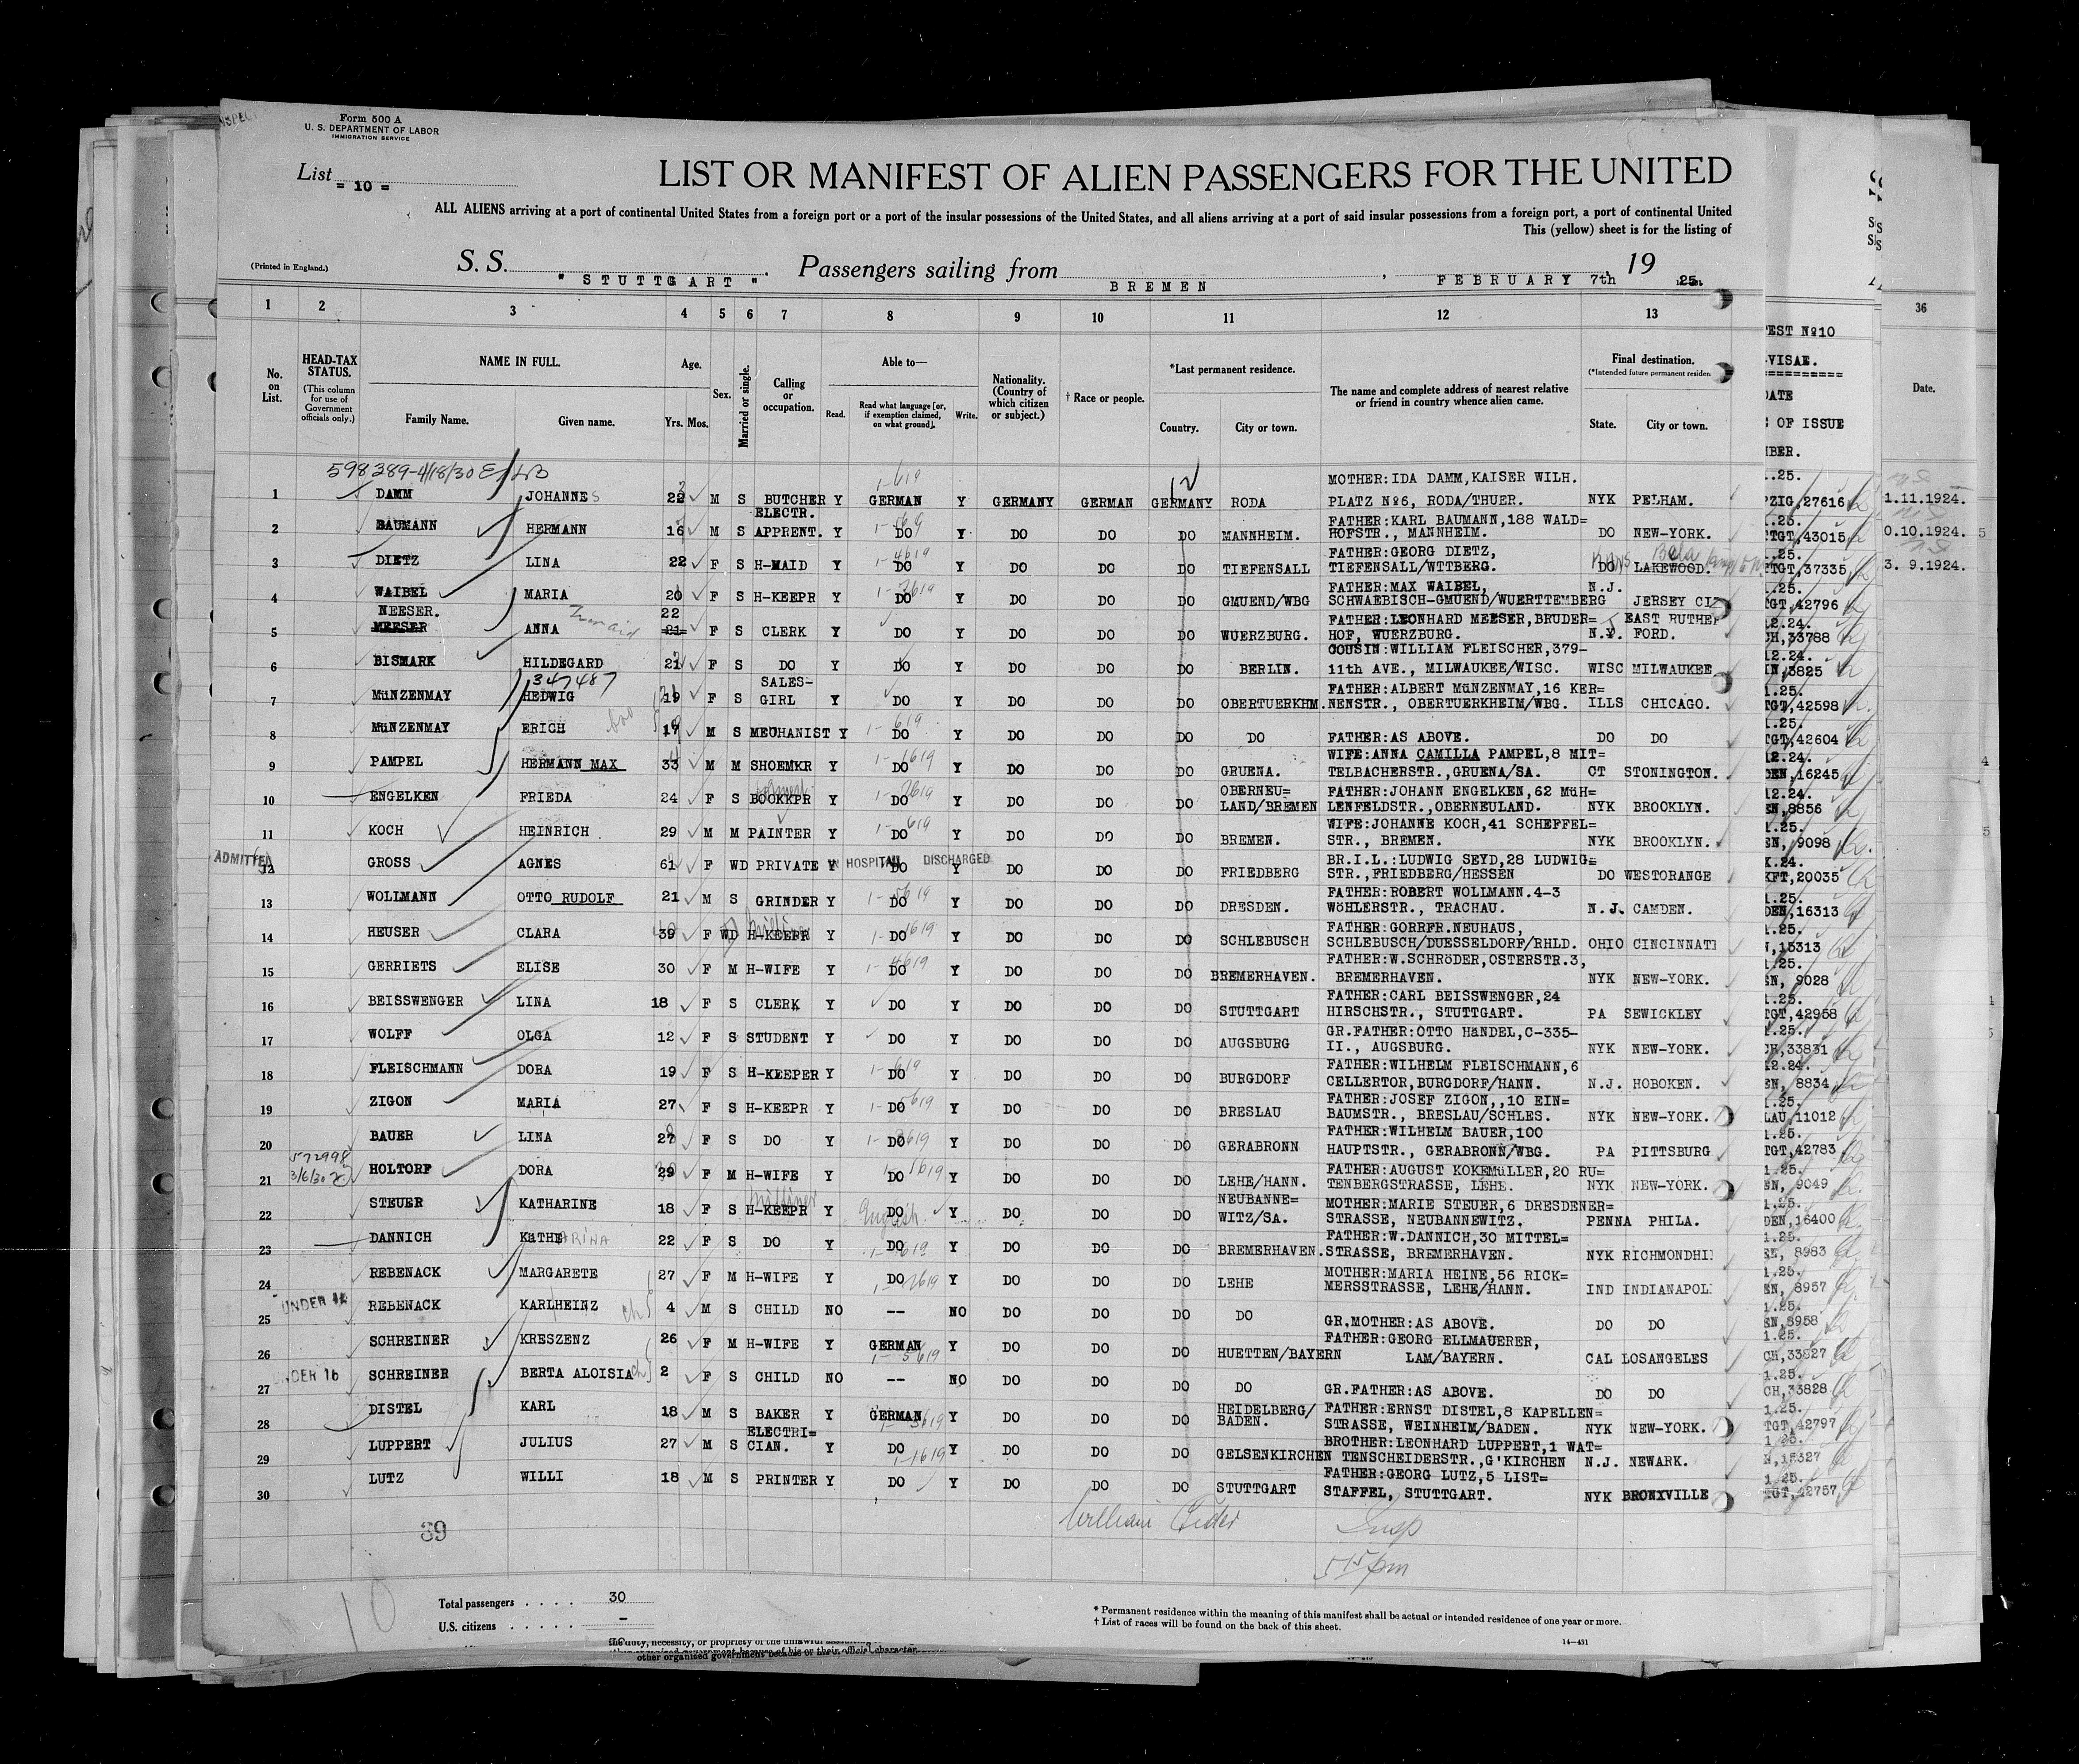 Form 500 A
U. S. DEPARTMENT OF LABOR
IMMIGRATION SERVICE
List = 10 =
LIST OR MANIFEST OF ALIEN PASSENGERS FOR THE UNITED
ALL ALIENS arriving at a port of continental United States from a foreign port or a port of the insular possessions of the United States, and all aliens arriving at a port of said insular possessions from a foreign port, a port of continental United
This (yellow) sheet is for the listing of
(Printed in England.)
S. S. " STUTTGART " . Passengers sailing from BREMEN , FEBRUARY 7th , 19 25.
1 2 3 4 5 6 7 8 9 10 11 12 13 36
No. on List.
HEAD-TAX STATUS.
(This column for use of Government officials only.)
NAME IN FULL.
Family Name. Given name.
Age.
Yrs. Mos.
Sex.
Married or single.
Calling or occupation.
Able to—
Read. Read what language [or, if exemption claimed, on what ground]. Write.
Nationality. (Country of which citizen or subject.)
† Race or people.
*Last permanent residence.
Country. City or town.
The name and complete address of nearest relative or friend in country whence alien came.
Final destination.
(*Intended future permanent residen
State. City or town.
EST №10
VISAE.
DATE
OF ISSUE
BER.
Date.
598389-4/18/30
1 DAMM JOHANNES 22 M S BUTCHER Y GERMAN Y GERMANY GERMAN GERMANY RODA MOTHER:IDA DAMM,KAISER WILH. PLATZ №6, RODA/THUER. NYK PELHAM. 1.25. PZIG,27616 1.11.1924.
2 BAUMANN HERMANN 16 M S ELECTR. APPRENT. Y DO Y DO DO DO MANNHEIM. FATHER:KARL BAUMANN,188 WALD= HOFSTR., MANNHEIM. DO NEW-YORK. 1.25. TGT,43015 0.10.1924.
3 DIETZ LINA 22 F S H-MAID Y DO Y DO DO DO TIEFENSALL FATHER:GEORG DIETZ, TIEFENSALL/WTTBERG. DO LAKEWOOD. 1.25. TGT,37335 3. 9.1924.
4 WAIBEL MARIA 20 F S H-KEEPR Y DO Y DO DO DO GMUEND/WBG FATHER:MAX WAIBEL, SCHWAEBISCH-GMUEND/WUERTTEMBERG N.J. JERSEY CI 1.25. TGT,42796
5 NEESER. MEESER ANNA 22 21 F S CLERK Y DO Y DO DO DO WUERZBURG. FATHER:LEONHARD MEESER,BRUDER= HOF, WUERZBURG. N.Y. EAST RUTHER FORD. 12.24. CH,33788
6 BISMARK HILDEGARD 21 F S DO Y DO Y DO DO DO BERLIN. COUSIN:WILLIAM FLEISCHER,379- 11th AVE., MILWAUKEE/WISC. WISC MILWAUKEE 12.24. IN,3825
347487
7 MüNZENMAY HEDWIG 19 F S SALES- GIRL Y DO Y DO DO DO OBERTUERKHM. FATHER:ALBERT MüNZENMAY,16 KER= NENSTR., OBERTUERKHEIM/WBG. ILLS CHICAGO. 1.25. TGT,42598
8 MüNZENMAY ERICH 17 M S MECHANIST Y DO Y DO DO DO DO FATHER:AS ABOVE. DO DO 1.25. TGT,42604
9 PAMPEL HERMANN MAX 33 M M SHOEMKR Y DO Y DO DO DO GRUENA. WIFE:ANNA CAMILLA PAMPEL,8 MIT= TELBACHERSTR.,GRUENA/SA. CT STONINGTON. 12.24. DEN,16245
10 ENGELKEN FRIEDA 24 F S BOOKKPR Y DO Y DO DO DO OBERNEU= LAND/BREMEN FATHER:JOHANN ENGELKEN,62 MüH= LENFELDSTR.,OBERNEULAND. NYK BROOKLYN. 12.24. EN,8856
11 KOCH HEINRICH 29 M M PAINTER Y DO Y DO DO DO BREMEN. WIFE:JOHANNE KOCH,41 SCHEFFEL= STR., BREMEN. NYK BROOKLYN. 1.25. EN, 9098
ADMITTED 12 GROSS AGNES 61 F WD PRIVATE Y IN HOSPITAL DISCHARGED DO Y DO DO DO FRIEDBERG BR.I.L.:LUDWIG SEYD,28 LUDWIG= STR.,FRIEDBERG/HESSEN DO WESTORANGE K.24. KFT,20035
13 WOLLMANN OTTO RUDOLF 21 M S GRINDER Y DO Y DO DO DO DRESDEN. FATHER:ROBERT WOLLMANN.4-3 WöHLERSTR., TRACHAU. N.J. CAMDEN. 1.25. DEN,16313
14 HEUSER CLARA 39 F WD H-KEEPR Y DO Y DO DO DO SCHLEBUSCH FATHER:GORRFR.NEUHAUS, SCHLEBUSCH/DUESSELDORF/RHLD. OHIO CINCINNATI 1.25. N,15313
15 GERRIETS ELISE 30 F M H-WIFE Y DO Y DO DO DO BREMERHAVEN. FATHER:W.SCHRöDER,OSTERSTR.3, BREMERHAVEN. NYK NEW-YORK. 1.25. EN, 9028
16 BEISSWENGER LINA 18 F S CLERK Y DO Y DO DO DO STUTTGART FATHER:CARL BEISSWENGER,24 HIRSCHSTR., STUTTGART. PA SEWICKLEY 1.25. TGT,42958
17 WOLFF OLGA 12 F S STUDENT Y DO Y DO DO DO AUGSBURG GR.FATHER:OTTO HäNDEL,C-335- II., AUGSBURG. NYK NEW-YORK. 1.25. CH,33831
18 FLEISCHMANN DORA 19 F S H-KEEPER Y DO Y DO DO DO BURGDORF FATHER:WILHELM FLEISCHMANN,6 CELLERTOR,BURGDORF/HANN. N.J. HOBOKEN. 12.24. EN, 8834
19 ZIGON MARIA 27 F S H-KEEPR Y DO Y DO DO DO BRESLAU FATHER:JOSEF ZIGON,,10 EIN= BAUMSTR., BRESLAU/SCHLES. NYK NEW-YORK. 1.25. LAU,11012
20 BAUER LINA 27 F S DO Y DO Y DO DO DO GERABRONN FATHER:WILHELM BAUER,100 HAUPTSTR., GERABRONN/WBG. PA PITTSBURG 1.25. TGT,42783
572998 3/6/30
21 HOLTORF DORA 29 F M H-WIFE Y DO Y DO DO DO LEHE/HANN. FATHER:AUGUST KOKEMüLLER,20 RU= TENBERGSTRASSE, LEHE. NYK NEW-YORK. 1.25. EN, 9049
22 STEUER KATHARINE 18 F S milliner H-KEEPR Y DO English Y DO DO DO NEUBANNE= WITZ/SA. MOTHER:MARIE STEUER,6 DRESDENER= STRASSE, NEUBANNEWITZ. PENNA PHILA. 1.25. DEN,16400
23 DANNICH KäTHE ARINA 22 F S DO Y DO Y DO DO DO BREMERHAVEN. FATHER:W.DANNICH,30 MITTEL= STRASSE, BREMERHAVEN. NYK RICHMONDHI 1.25. EN, 8983
24 REBENACK MARGARETE 27 F M H-WIFE Y DO Y DO DO DO LEHE MOTHER:MARIA HEINE,56 RICK= MERSSTRASSE, LEHE/HANN. IND INDIANAPOL 1.25. EN, 8957
UNDER 16 25 REBENACK KARLHEINZ 4 M S CHILD NO -- NO DO DO DO DO GR.MOTHER:AS ABOVE. DO DO 1.25. EN,8958
26 SCHREINER KRESZENZ 26 F M H-WIFE Y GERMAN Y DO DO DO HUETTEN/BAYERN FATHER:GEORG ELLMAUERER, LAM/BAYERN. CAL LOSANGELES 1.25. CH,33827
NDER 16 27 SCHREINER BERTA ALOISIA 2 F S CHILD NO -- NO DO DO DO DO GR.FATHER:AS ABOVE. DO DO 1.25. CH,33828
28 DISTEL KARL 18 M S BAKER Y GERMAN Y DO DO DO HEIDELBERG/ BADEN. FATHER:ERNST DISTEL,8 KAPELLEN= STRASSE, WEINHEIM/BADEN. NYK NEW-YORK. 1.25. TGT,42797
29 LUPPERT JULIUS 27 M S ELECTRI= CIAN. Y DO Y DO DO DO GELSENKIRCHEN BROTHER:LEONHARD LUPPERT,1 WAT= TENSCHEIDERSTR.,G'KIRCHEN N.J. NEWARK. 1.25. N,15327
30 LUTZ WILLI 18 M S PRINTER Y DO Y DO DO DO STUTTGART FATHER:GEORG LUTZ,5 LIST= STAFFEL, STUTTGART. NYK BRONXVILLE 1.25. TGT,42757
39
William Insp
515 pm
10
Total passengers . . . . 30
U.S. citizens . . . . . –
* Permanent residence within the meaning of this manifest shall be actual or intended residence of one year or more.
† List of races will be found on the back of this sheet.
14—431
other organized government because of his or their official character